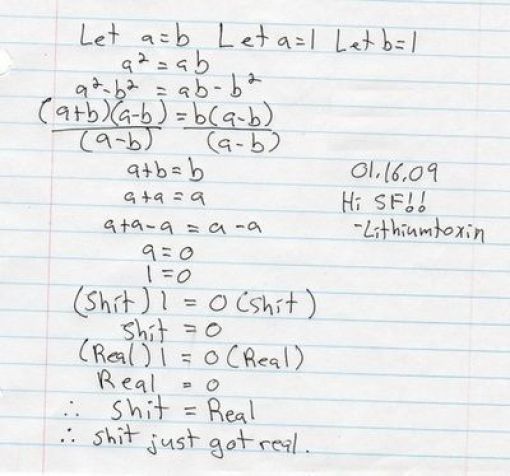 Let a=b Let a=1 Let b=1
a² = ab
a²-b² = ab-b²
(a+b)(a-b) = b(a-b)
(a-b) (a-b)
a+b=b
a+a=a
a+a-a = a-a
a=0
1=0
(Shit) 1 = 0 (Shit)
Shit = 0
(Real) 1 = 0 (Real)
Real = 0
∴ Shit = Real
∴ shit just got real.
01.16.09
Hi SF!!
-Lithiumtoxin